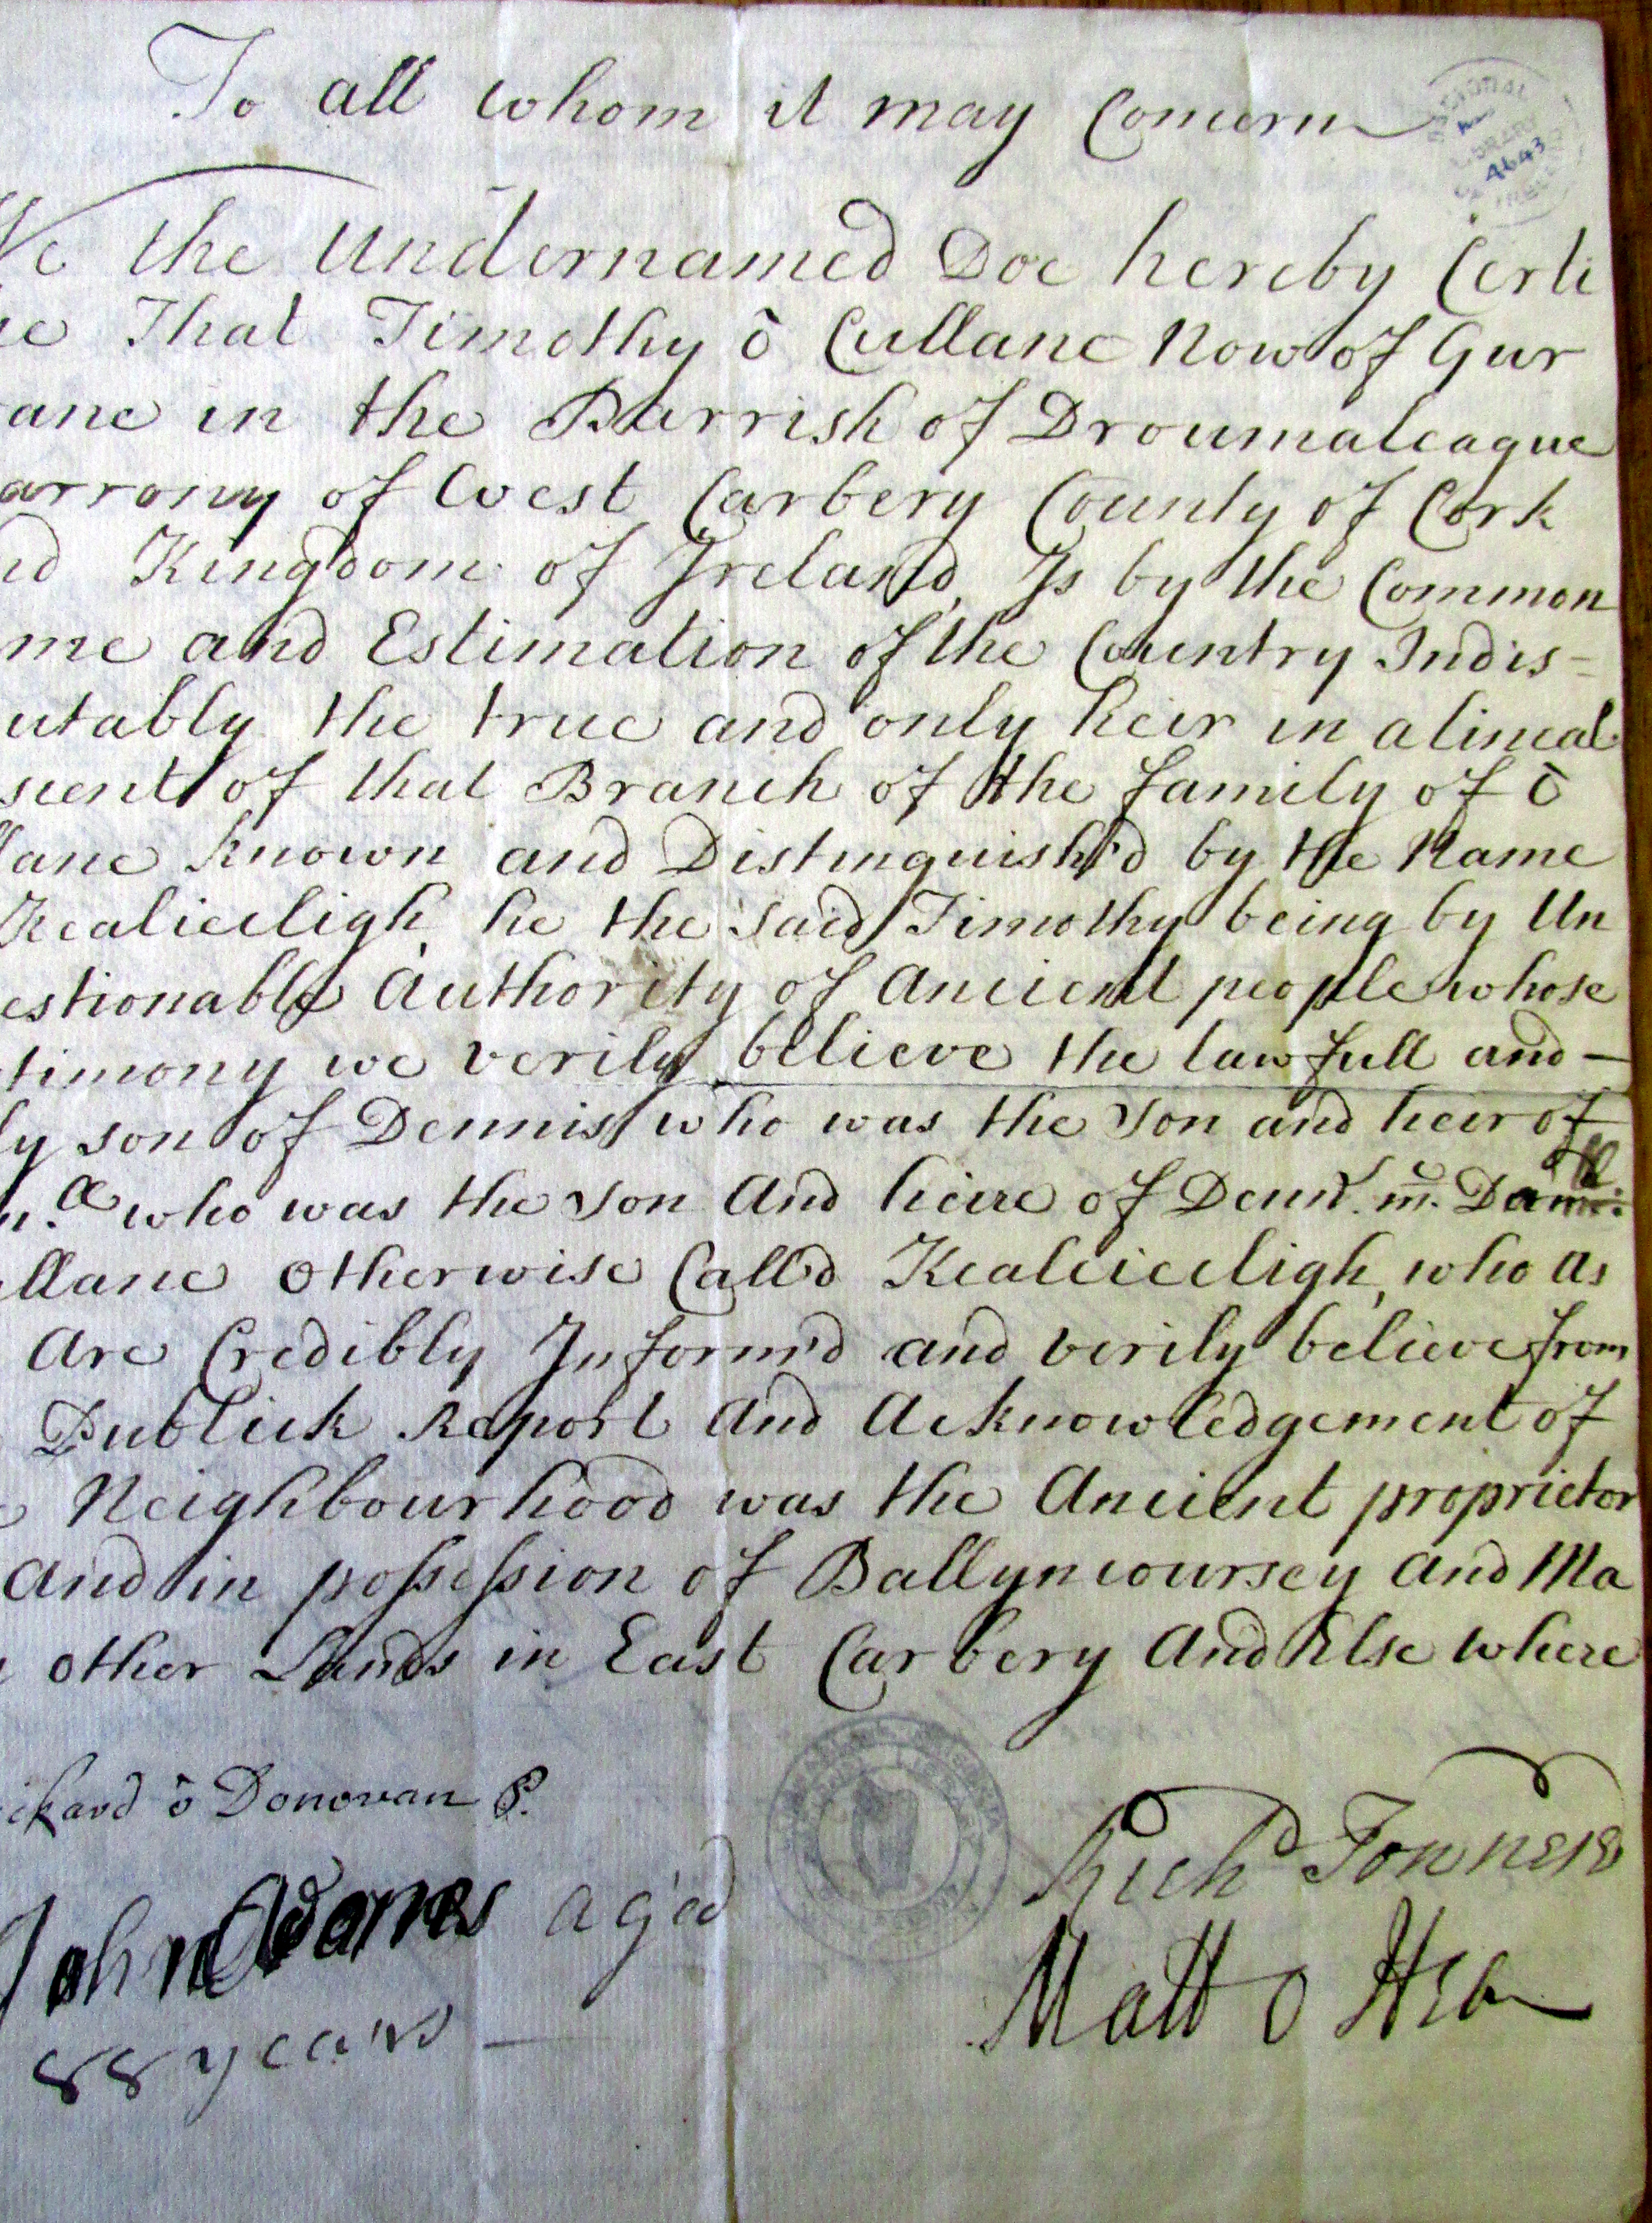 To all whom it may Concern
NATIONAL
LIBRARY
4643
We the Undernamed Doe hereby Certi
ie That Timothy ō Cullane Now of Gur
ane in the Parrish of Droumaleague
arrony of West Carbery County of Cork
nd Kingdom of Ireland, Is by the Common
me and Estimation of the Country Indis=
utably the true and only heir in a lineal
scent of that Branch of the family of ō
lane known and Distinguish'd by the Name
Kealiceligh, he the said Timothy being by Un
estionable Authority of Ancient people whose
timony we verily believe the lawfull and –
ly son of Dennis who was the son and heir of
who was the son and heire of Denn.
llane Otherwise Call'd Kealcieeligh, who as
are Credibly Inform'd and verily believe from
Publick Report and Acknowledgement of
e Neighbourhood was the Ancient proprietor
and in possession of Ballyncoursey and Ma
other Lands in East Carbery and Else where
ickard ō Donovan P.
Richd Townesd
John Adams aged
Matt O Hea
88 years –